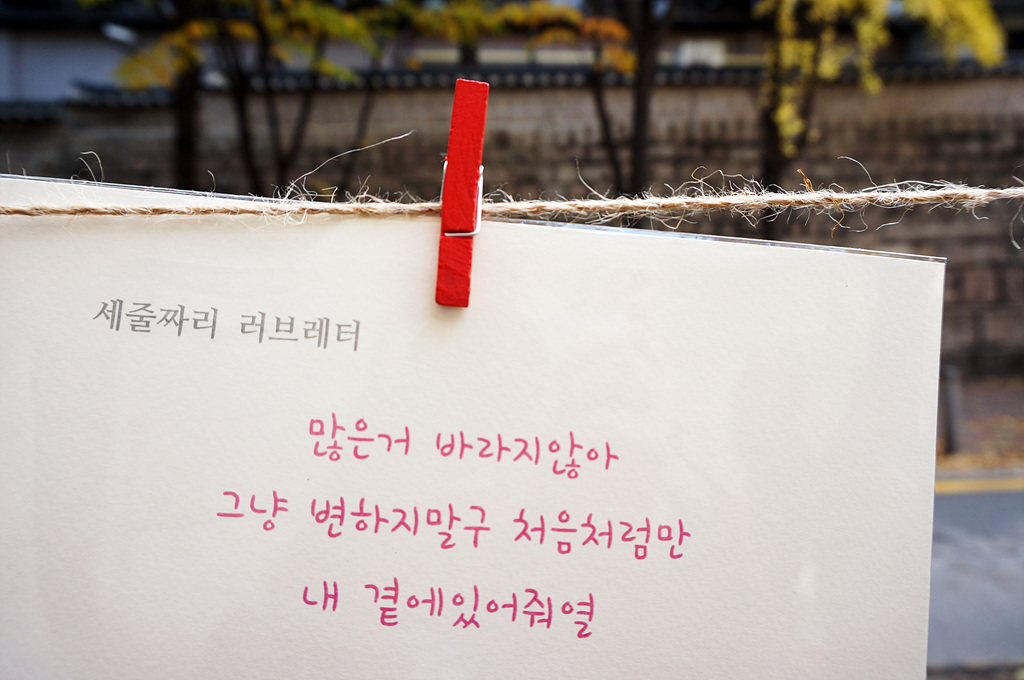 세줄짜리 러브레터
많은거 바라지않아
그냥 변하지말구 처음처럼만
내 곁에있어줘열